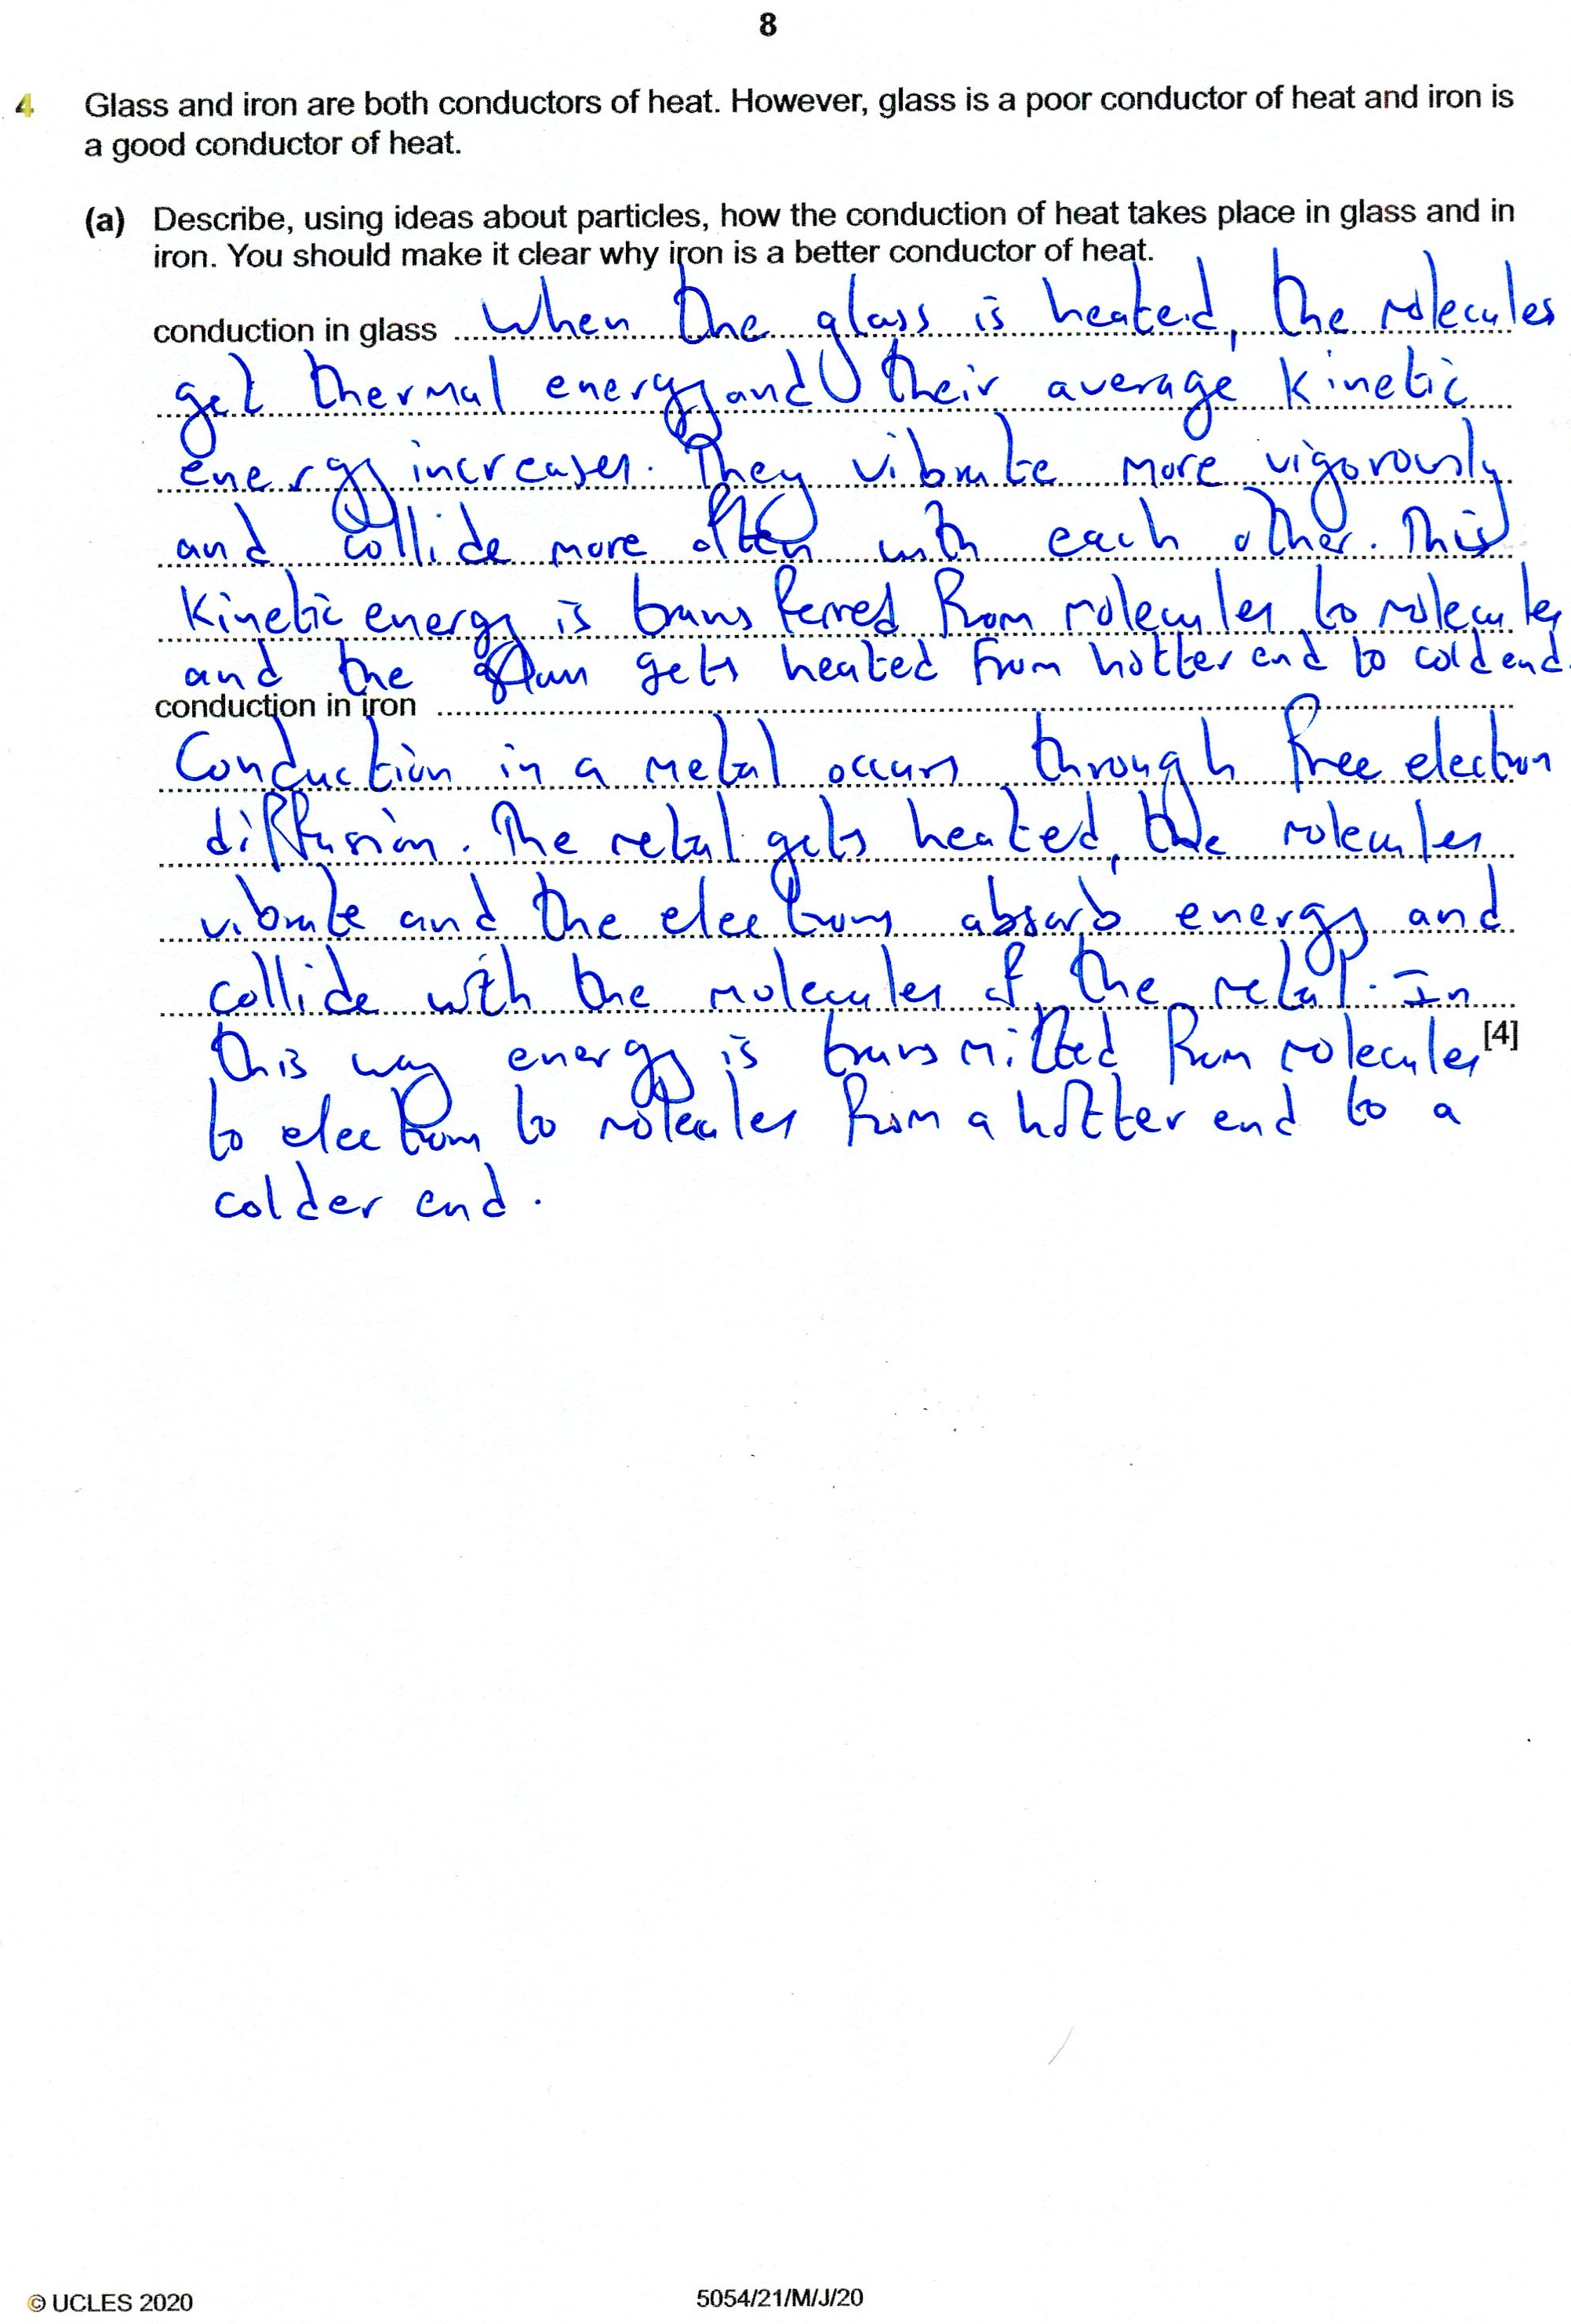 8
4 Glass and iron are both conductors of heat. However, glass is a poor conductor of heat and iron is
a good conductor of heat.
(a) Describe, using ideas about particles, how the conduction of heat takes place in glass and in
iron. You should make it clear why iron is a better conductor of heat.
conduction in glass When the glass is heated, the molecules
get thermal energy and their average kinetic
energy increases. They vibrate more vigorously
and collide more often with each other. This
kinetic energy is transferred from molecules to molecules
and the glass gets heated from hotter end to cold end.
conduction in iron
Conduction in a metal occurs through free electron
diffusion. The metal gets heated, the molecules
vibrate and the electrons absorb energy and
collide with the molecules of the metal. In
this way energy is transmitted from molecules [4]
to electrons to molecules from a hotter end to a
colder end.
© UCLES 2020
5054/21/M/J/20